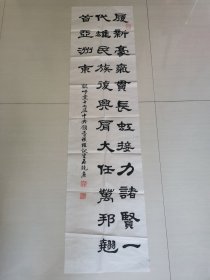 履新豪氣貫長虹接力諸賢一
代雄民族復興肩大任萬邦翹
首亞洲東